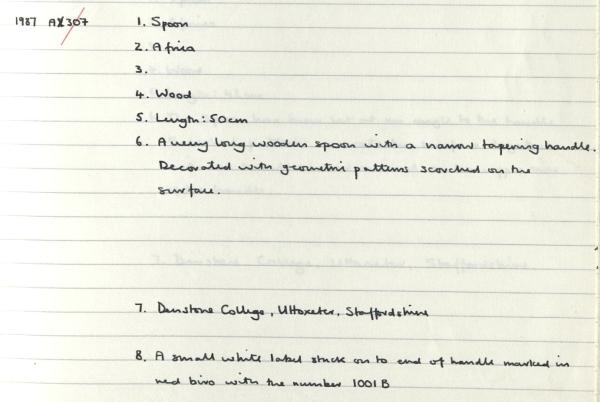 1987 AZ307 1. Spoon
2. Africa
3.
4. Wood
5. Length: 50cm
6. A very long wooden spoon with a narrow tapering handle.
Decorated with geometric patterns scorched on the
surface.
7. Denstone College, Uttoxeter, Staffordshire
8. A small white label stuck on to end of handle marked in
red biro with the number 1001B